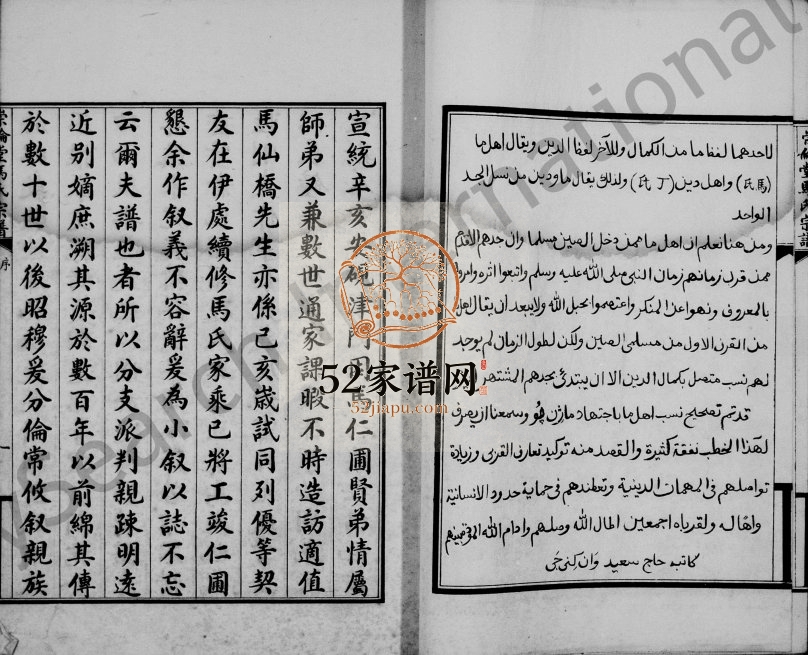 لاحدهما لفظ ما من الكمال وللآخر لفظ الدين ويقال اهل ما
(馬氏) واهل دين (丁氏) ولذلك يقال ما ودين من نسل الجد
الواحد
ومن هنا نعلم ان اهل ما ممن دخل الصين مسلما وان جدهم الاقدم
ممن قرن زمانهم زمان النبي صلى الله عليه وسلم واتبعوا اثره وامروا
بالمعروف ونهوا عن المنكر واعتصموا بحبل الله ولا يبعد ان يقال اهل
من القرن الاول من مسلمى الصين ولكن لطول الزمان لم يوجد
لهم نسب متصل بكمال الدين الا ان يبتدئ بجدهم المشتهر
قد تم تصحيح نسب اهل ما باجتهاد وسمعنا ان يصرف
لهذا الخطب نفقة كثيرة والقصد منه توكيد تعارف القربى وزيادة
تواصلهم فى المهمات الدينية فى حماية حدود الانسانية
ولقرباه اجمعين اطال الله وادام الله
كاتبه حاج سعيد وان
宣統辛亥安硯津門因馬仁圃賢弟情屬
師弟又兼數世通家課暇不時造訪適值
馬仙橋先生亦係己亥歲試同列優等契
友在伊處續修馬氏家乘已將工竣仁圃
懇余作叙義不容辭爰為小叙以誌不忘
云爾夫譜也者所以分支派判親疎明遠
近别嫡庶溯其源於數百年以前綿其傳
於數十世以後昭穆爰分倫常攸叙親族
馬氏宗譜
序
一
52家谱网
52jiapu.com